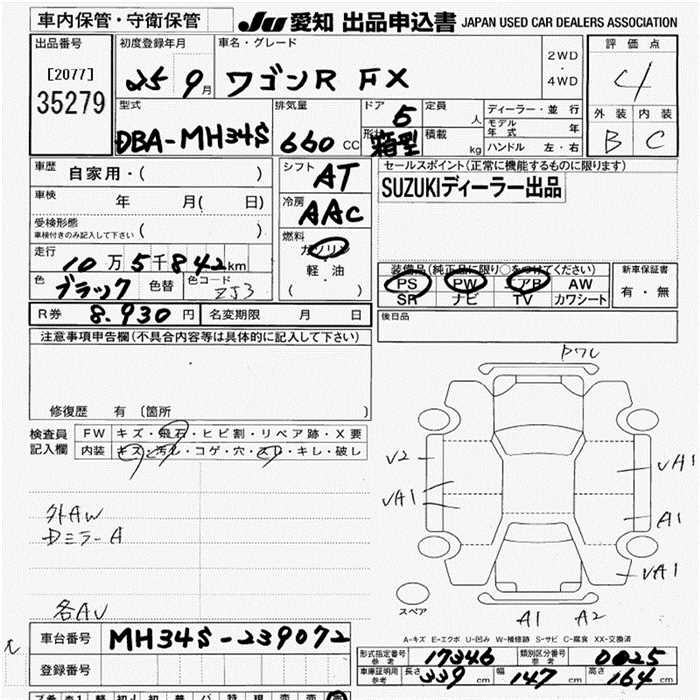 車内保管・守衛保管
JU 愛知 出品申込書 JAPAN USED CAR DEALERS ASSOCIATION
出品番号
[2077]
35279
初度登録年月
25 9月
車名・グレード
ワゴンR FX
2WD
・
4WD
評価点
4
外装 内装
B C
型式
DBA-MH34S
排気量
660 CC
ドア 5
形状 箱型
定員 人
積載 kg
ディーラー・並行
モデル年式 年
ハンドル 左・右
車歴 自家用・( )
車検 年 月( 日)
受検形態
車検付きのみ記入して下さい ( )
走行 10万5千842km
色 ブラック 色替 色コード ZJ3
シフト AT
冷房 AAC
燃料
ガソリン
軽・油
( )
セールスポイント(正常に機能するものに限ります)
SUZUKIディーラー出品
装備品(純正品に限り○をつけてください)
PS PW エアB AW
SR ナビ TV カワシート
新車保証書
有・無
後日品
R券 8.930円 名変期限 月 日
注意事項申告欄(不具合内容等は具体的に記入して下さい)
修復歴 有 〔箇所 〕
検査員記入欄
FW キズ・飛石・ヒビ割・リペア跡・X要
内装 キズ・汚れ・コゲ・穴・スレ・キレ・破レ
外AW
DミラーA
各AU
V2
UA1
UA1
A1
UA1
A1 A2
スペア
A-キズ E-エクボ U-凹み W-補修跡 S-サビ C-腐食 XX-交換済
車台番号 MH34S-239072
登録番号
形式指定番号 参考 17346
類別区分番号 参考 0025
車庫証明用 参考 長さ 339 cm 幅 147 cm 高さ 164 cm